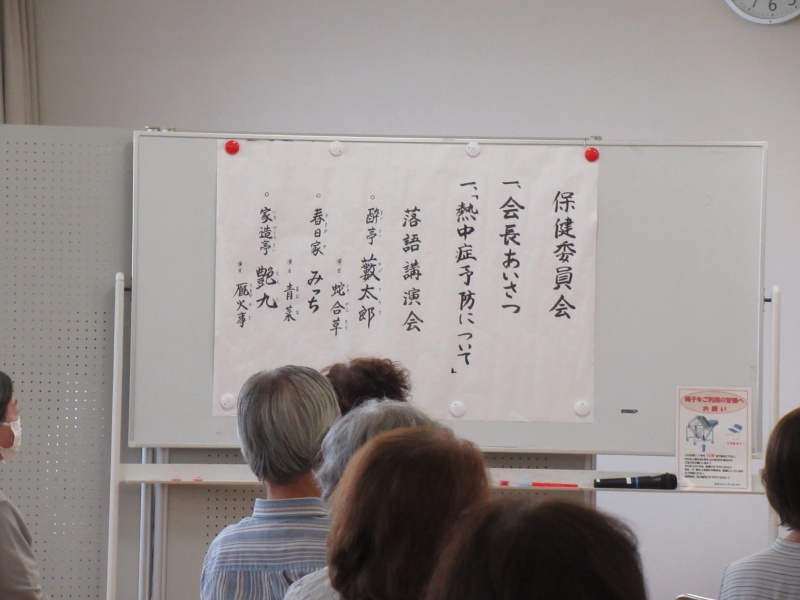 保健委員会
一、会長あいさつ
一、「熱中症予防について」
落語講演会
。酔亭 藪太郎
演目 蛇含草
。春日家 みっち
演目 青菜
。家造亭 艶九
演目 厩火事
椅子をご利用の皆様へ
お願い
7 6 5